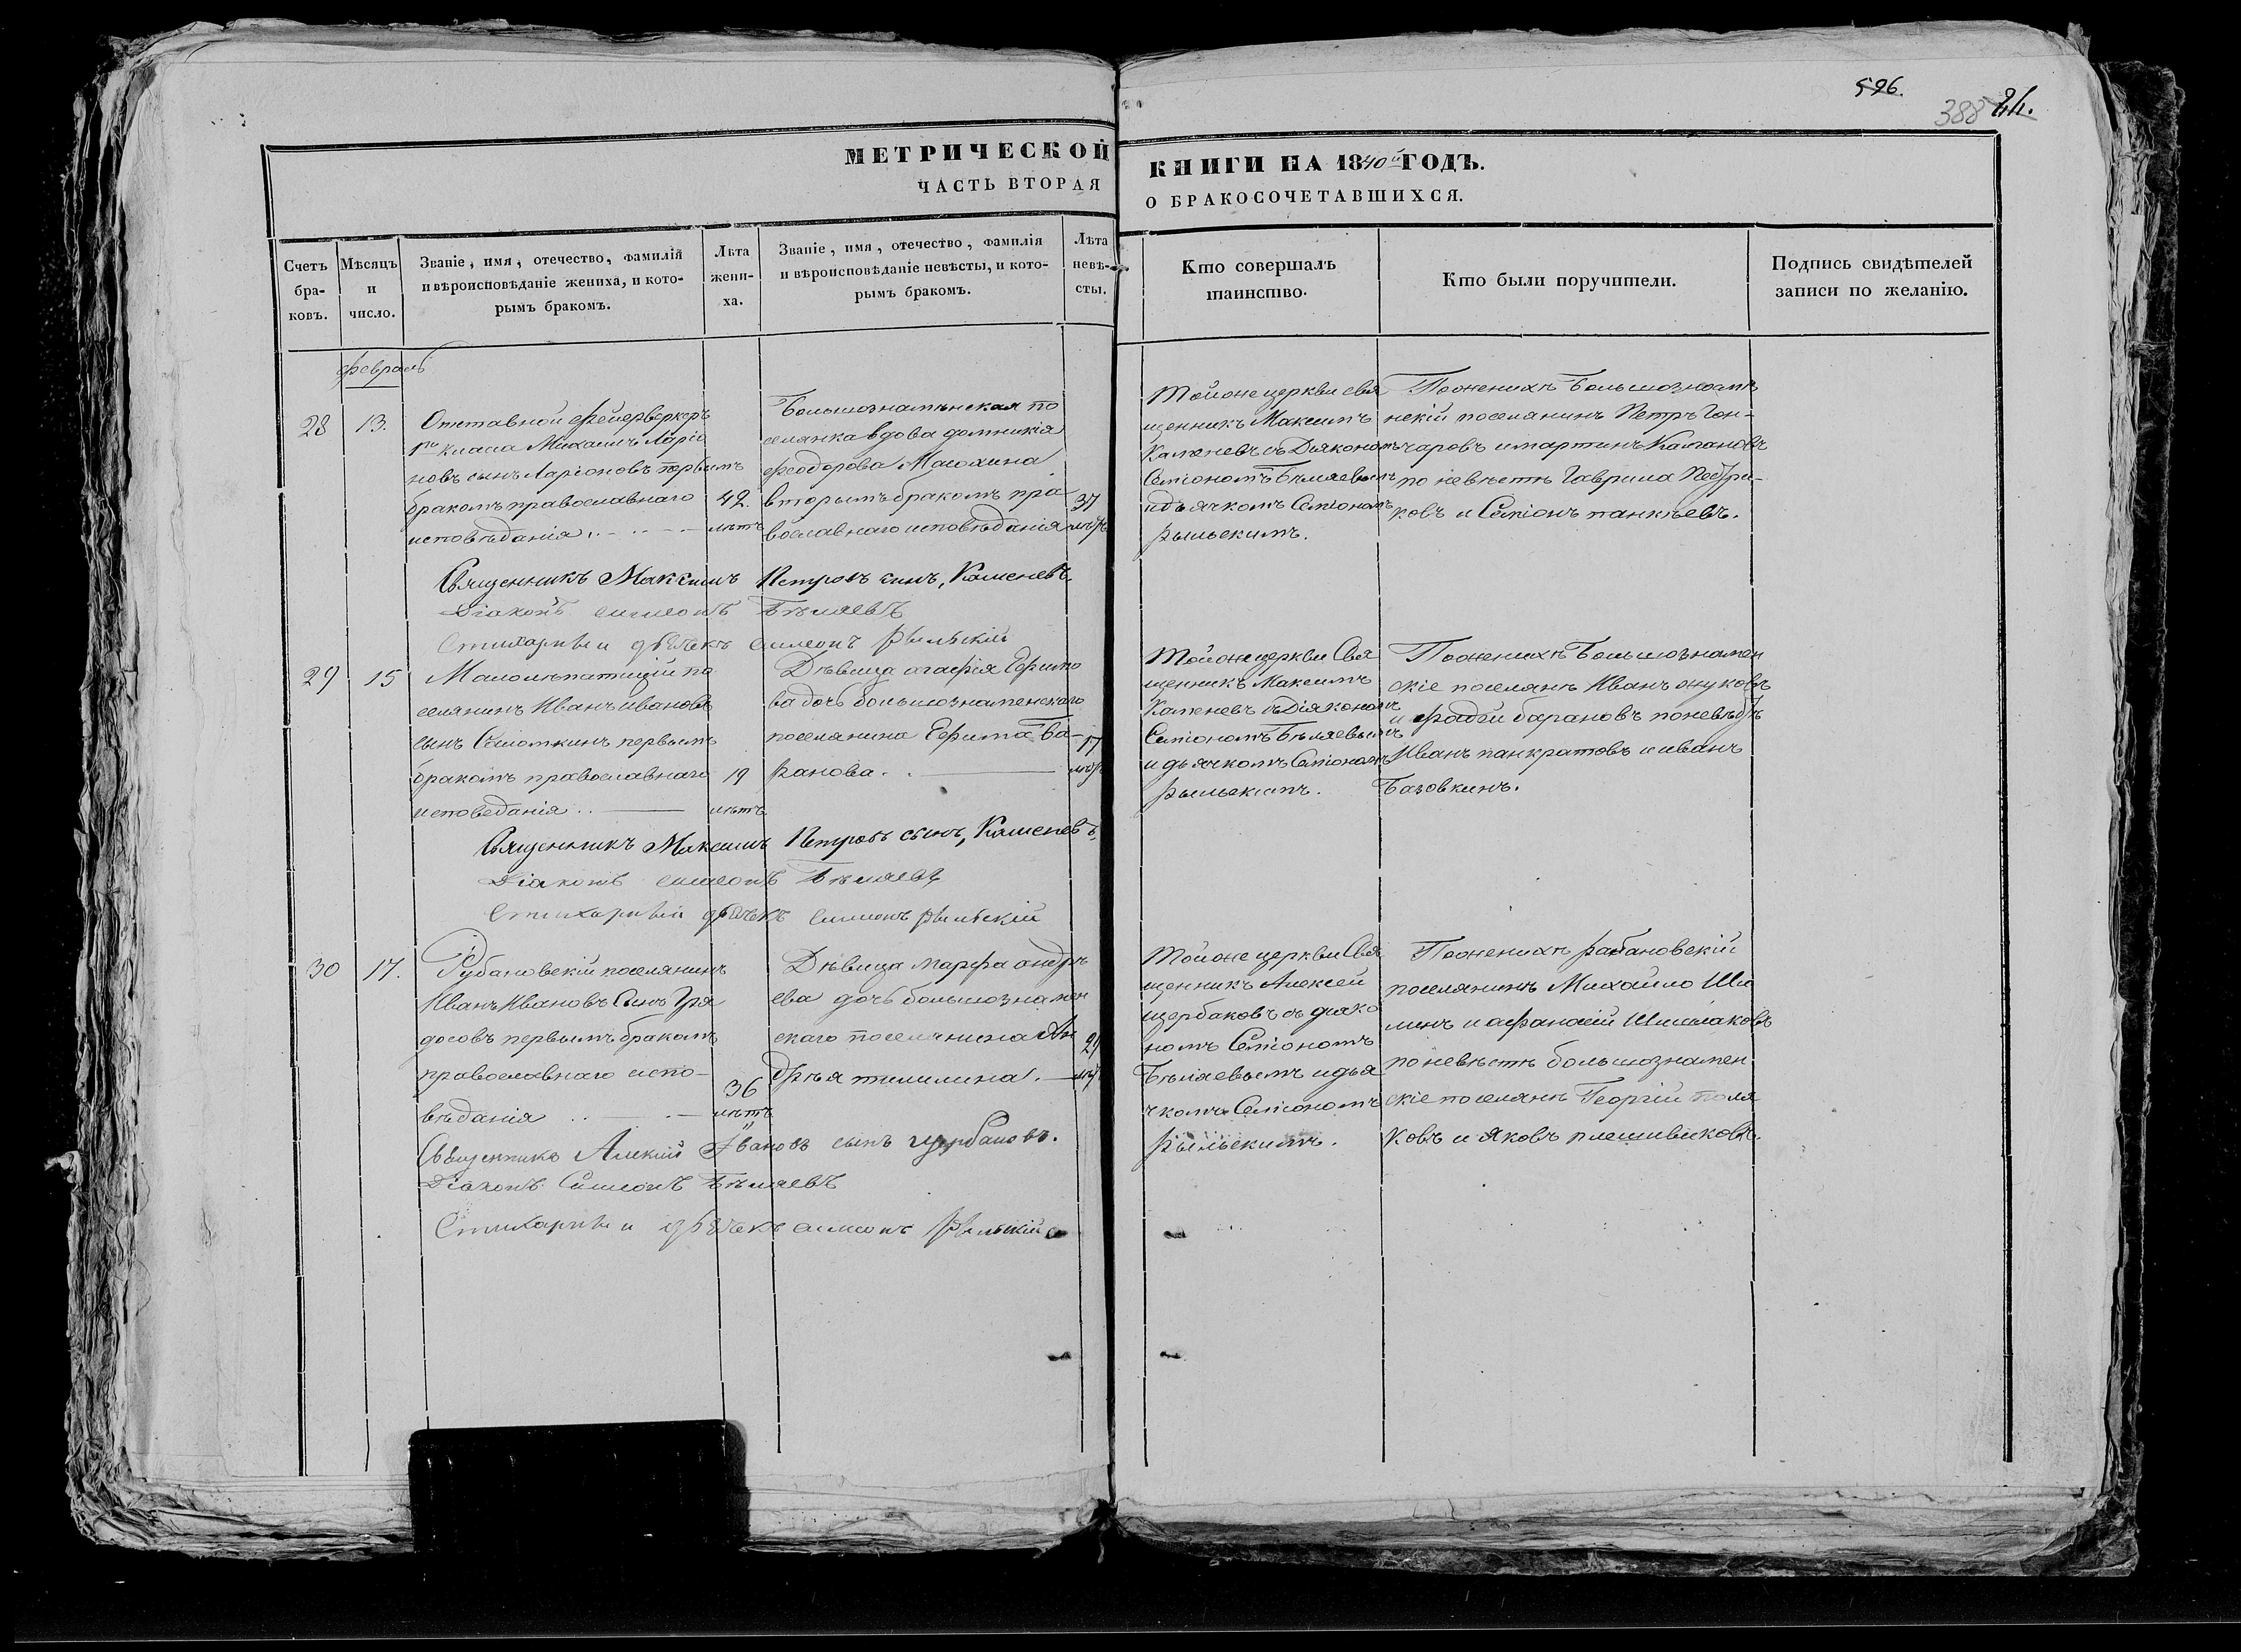 596.
388 24.
МЕТРИЧЕСКОЙ КНИГИ НА 1840й ГОДЪ.
ЧАСТЬ ВТОРАЯ О БРАКОСОЧЕТАВШИХСЯ.
Счетъ
бра-
ковъ.
Мѣсяцъ
и
число.
Званіе, имя, отечество, фамилія
и вѣроисповѣданіе жениха, и кото-
рымъ бракомъ.
Лѣта
жени-
ха.
Званіе, имя, отечество, фамилія
и вѣроисповѣданіе невѣсты, и кото-
рымъ бракомъ.
Лѣта
невѣ-
сты.
Кто совершалъ
таинство.
Кто были поручители.
Подпись свидѣтелей
записи по желанію.
февраль
28
13.
Отставной фейерверкеръ
1го класса Михаилъ Ларіо
новъ сынъ Ларіоновъ первымъ
бракомъ православнаго
исповѣданія
42.
лѣтъ
Большознамѣнская по
селянка вдова домникія
феодорова Масохина
вторымъ бракомъ пра
вославнаго исповѣданія
37
Тойже церкви свя
щенникъ Максимъ
Каменевъ съ Діякономъ
Семіономъ Бѣляевымъ
и дьячкомъ Семіономъ
рыльскимъ.
По женихѣ Большознамѣ
нскій поселянинъ Петръ Гон-
чаровъ и мартинъ
по невѣстѣ Гаврила
ковъ и Семіонъ панкѣевъ.
Священникъ Максимъ Петровъ сынъ, Каменевъ.
Діаконъ симеонъ Бѣляевъ
Стихарный дьячекъ симеонъ рыльскій
29
15
поселянинъ Иванъ ивановъ
сынъ Саломкинъ первымъ
бракомъ православнаго
исповеданія
19
лѣтъ
Дѣвица агафія Ефимо
ва дочь большознаменскаго
поселянина Ефима Ба-
ранова.
17
Тойже церкви Свя
щенникъ Максимъ
Каменевъ съ Діякономъ
Семіономъ Бѣляевымъ
и дьячкомъ Семіономъ
рыльскимъ.
По женихѣ Большознамен
скіе поселянѣ Иванъ
и фадей барановъ по невѣстѣ
Иванъ панкратовъ и иванъ
Базовкинъ.
Священникъ Максимъ Петровъ сынъ, Каменевъ.
Діаконъ симеонъ Бѣляевъ
Стихарный дьячекъ симеонъ рыльскій
30
17.
Рубановскій поселянинъ
Иванъ Ивановъ Сынъ Гря
досовъ первымъ бракомъ
православнаго испо-
вѣданія
36
лѣтъ
Дѣвица марфа андрѣ
ева дочь большознамен
скаго поселянина Ан
дрѣя тилилина.
21
Тойже церкви Свя
щенникъ Алексѣй
щербаковъ съ діяко
номъ Семіономъ
Бѣляевымъ и дья
чкомъ Семіономъ
рыльскимъ.
По женихѣ рабановскій
поселянинъ Михайло Ши
линъ и афанасій
по невѣстѣ большознамен
скіе поселянѣ Георгій поля
ковъ и Яковъ плешивиковъ.
Священникъ Алексій Ивановъ сынъ щербаковъ.
Діаконъ Симеонъ Бѣляевъ
Стихарный дьячекъ симеонъ рыльскій